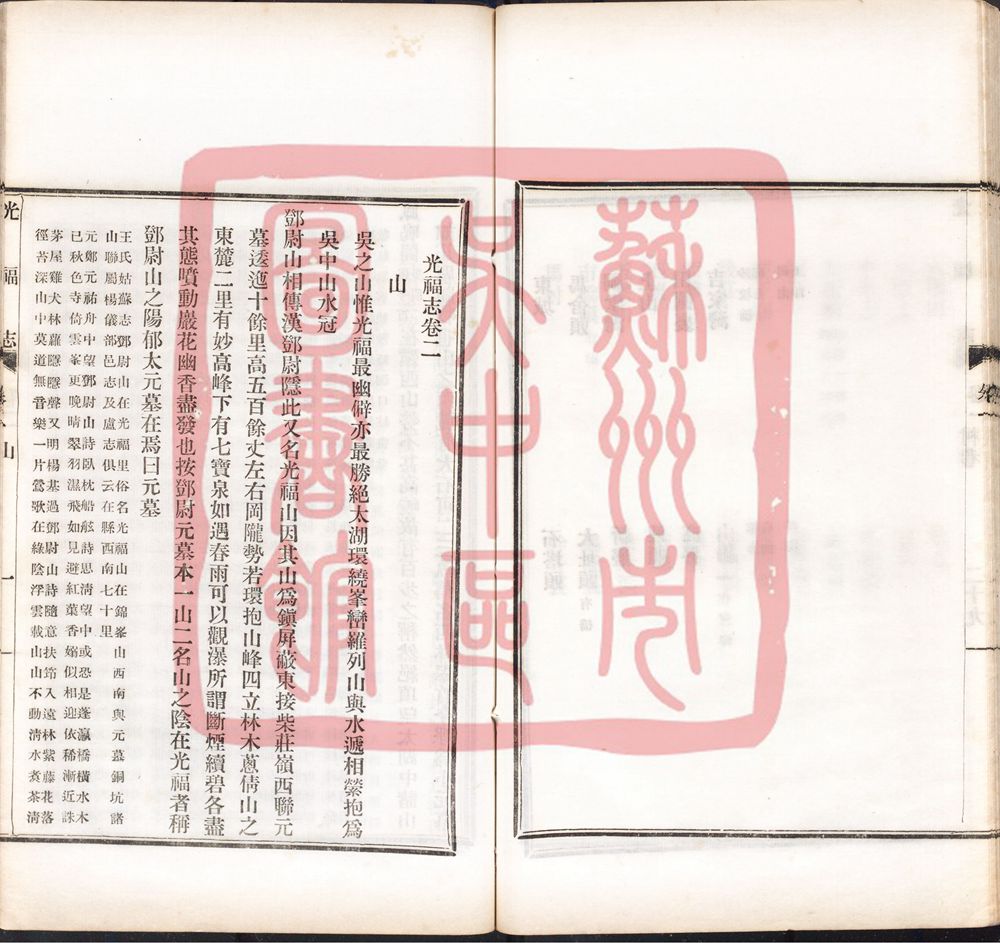 蘇州市
吳中區
圖書館
光福志卷二
山
吳之山惟光福最幽僻亦最勝絕太湖環繞峯巒羅列山與水遞相縈抱爲
吳中山水冠
鄧尉山相傳漢鄧尉隱此又名光福山因其山爲鎭屏蔽東接柴莊嶺西聯元
墓透迤十餘里高五百餘丈左右岡隴勢若環抱山峰四立林木蔥倩山之
東麓二里有妙高峰下有七寶泉如遇春雨可以觀瀑所謂斷煙續碧各盡
其態噴動巖花幽香盡發也按鄧尉元墓本一山二名山之陰在光福者稱
鄧尉山之陽郁太元墓在焉曰元墓
王氏姑蘇志鄧尉山在光福里俗名光福山在錦峯山西南與元墓銅坑諸
山聯屬楊儀部邑志及盧志俱云在縣西南七十里
元鄭元祐舟中望鄧尉山詩臥枕船舷詩思淸望中或恐是蓬瀛橋橫水木
已秋色寺倚雲峯更晚晴翠羽濕飛如見避紅葉香嫋似相迎依稀漸近誅
茅屋雞犬林蘿隱隱聲又明楊基過鄧尉山詩隨意扶筇入遠林紫藤花落
徑苔深山中莫道無音樂一片鶯歌在綠陰浮雲載山山不動淸水煮茶淸
光福志 山 一